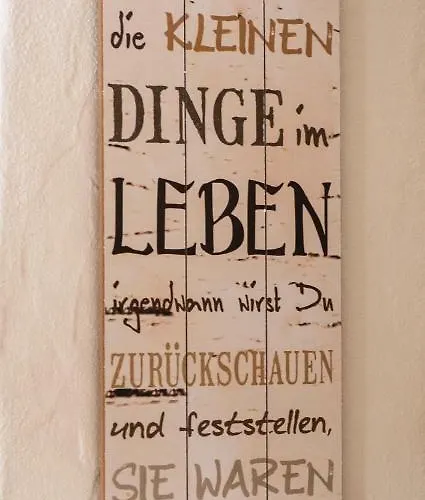 die KLEINEN
DINGE im
LEBEN
irgendwann wirst Du
ZURÜCKSCHAUEN
und feststellen,
SIE WAREN